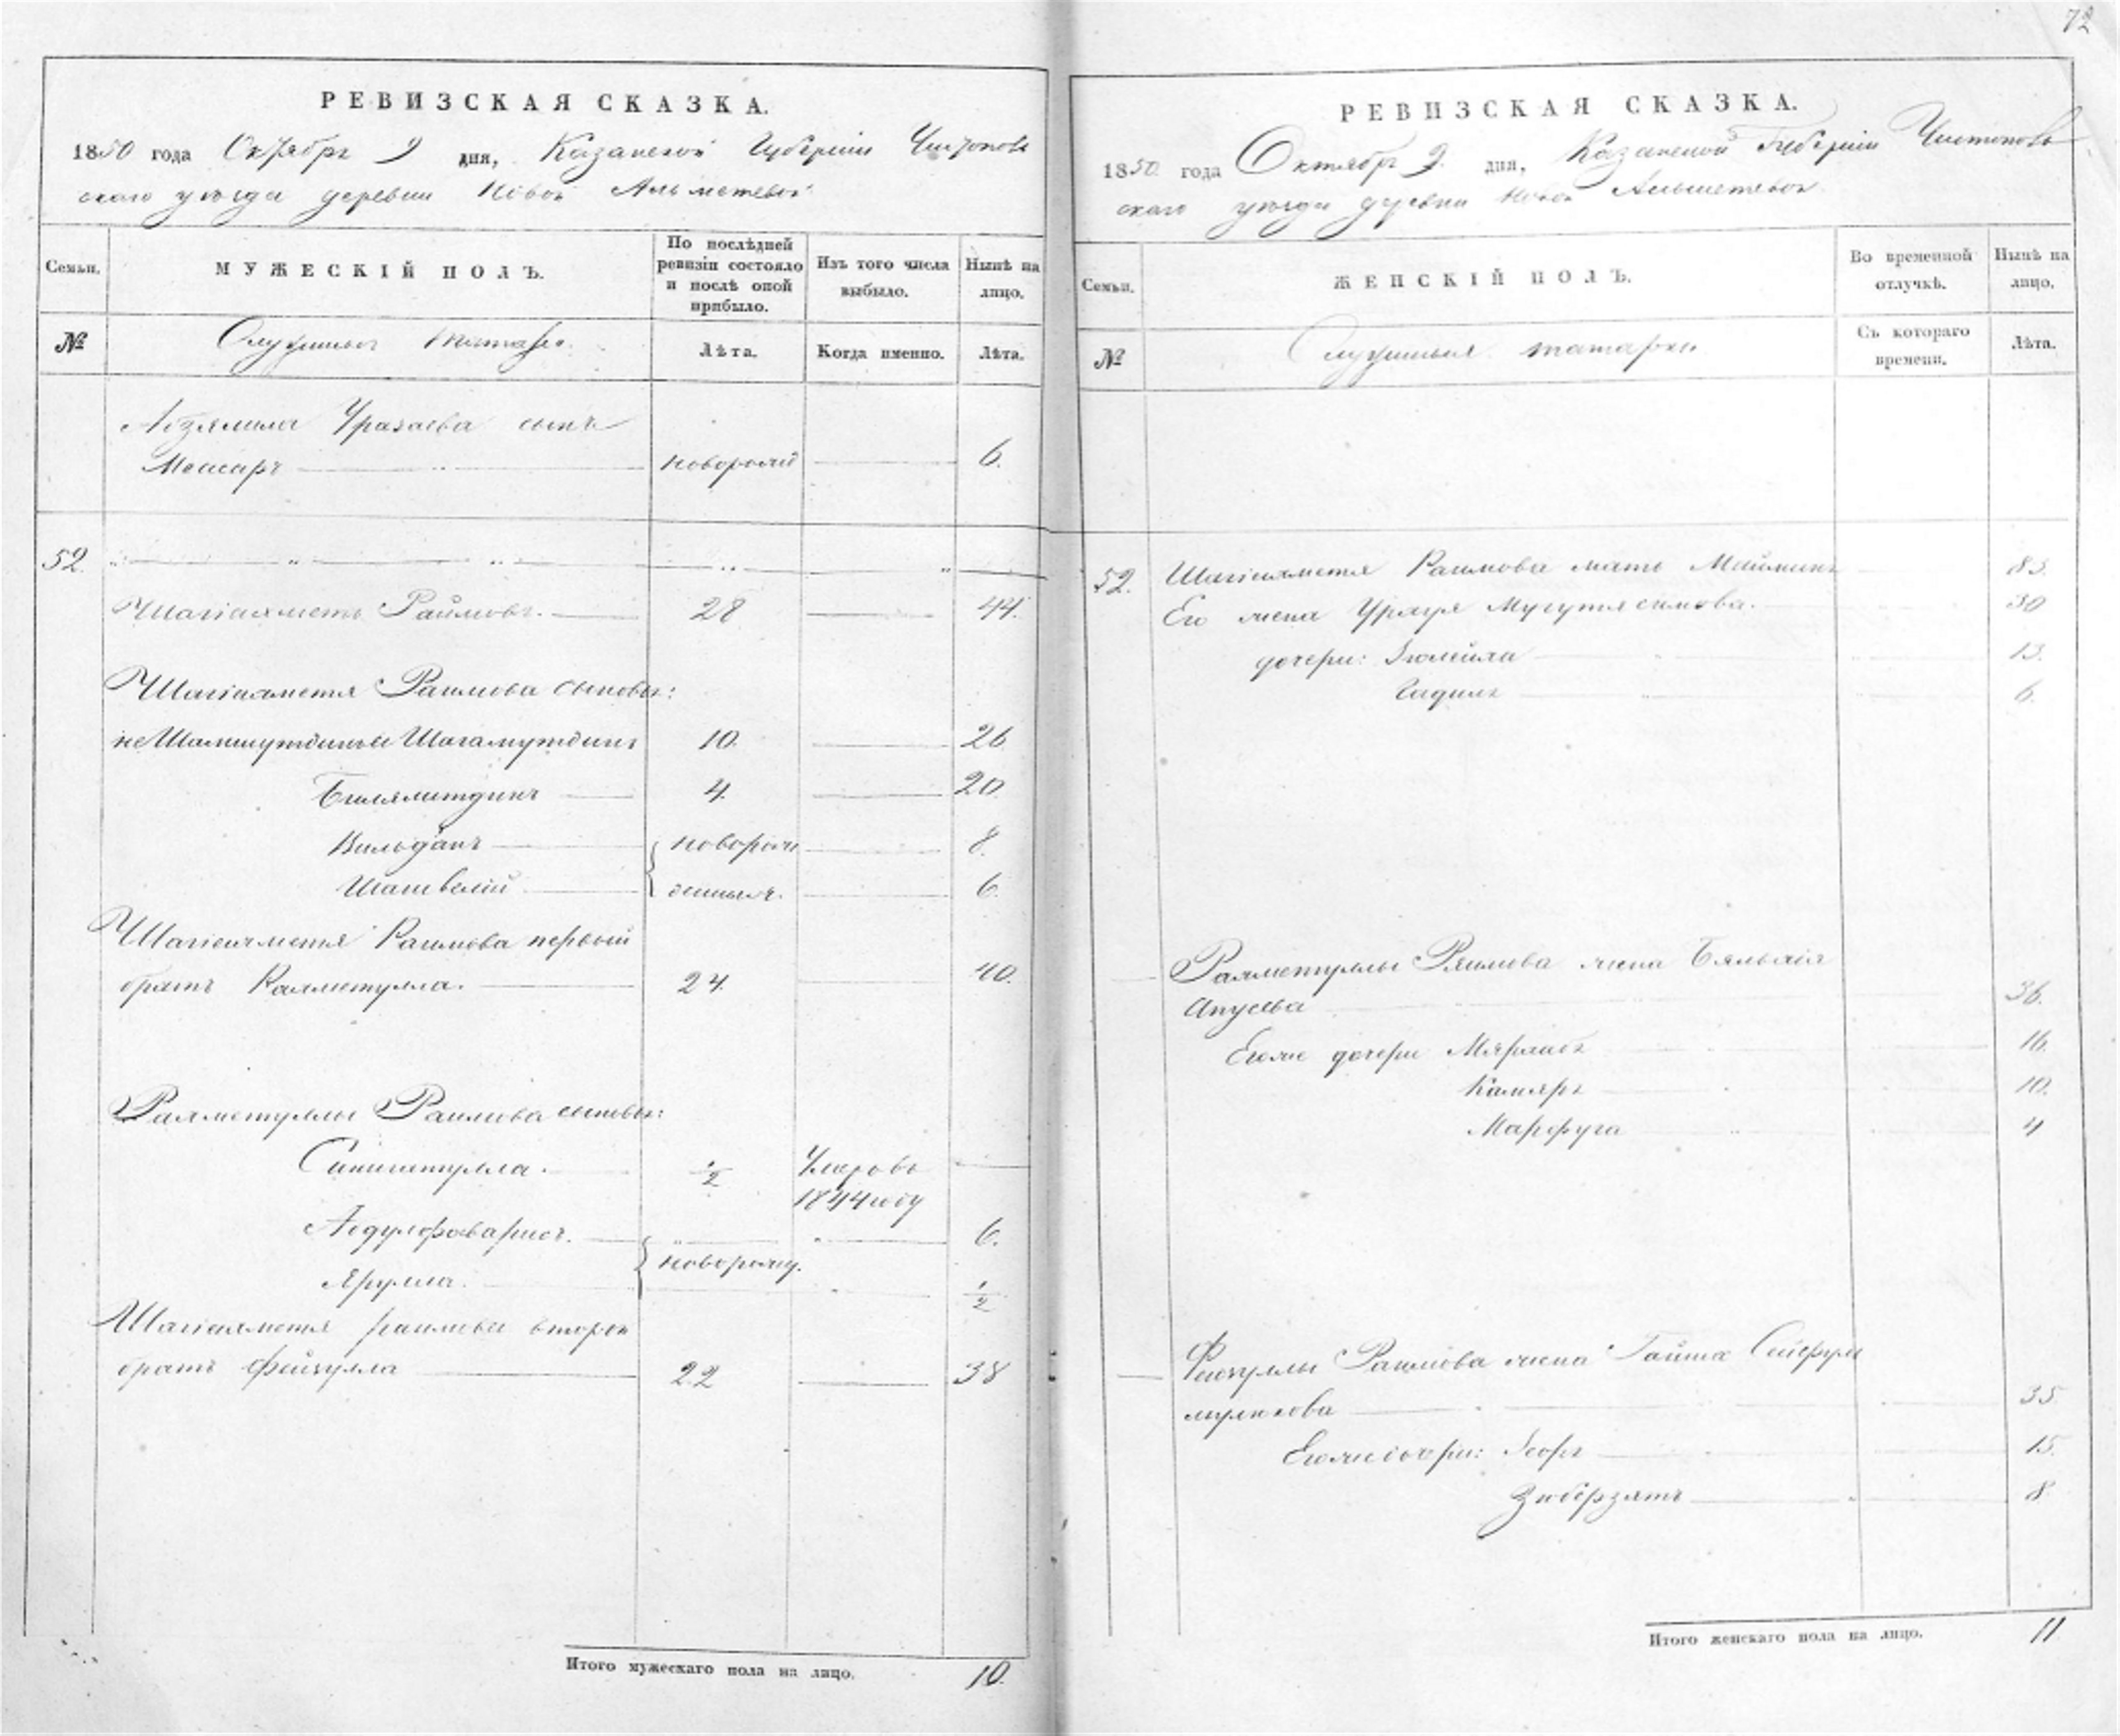 72
РЕВИЗСКАЯ СКАЗКА.
1850 года Октября 9 дня, Казанской Губернiи Чистополь
скаго уѣзда деревни Новой Альметевой
Семьи.
МУЖЕСКIЙ ПОЛЪ.
По послѣдней ревизiи состояло и послѣ оной прибыло.
Изъ того числа выбыло.
Нынѣ на лицо.
№
Служилые татары.
Лѣта.
Когда именно.
Лѣта.
Абзялила Уразаева сынъ
новорожд 6.
52.
Шагiахметъ Раимовъ. 28 44.
Шагiахметя Раимова сыновья:
10. 26
Билялитдинъ 4. 20
Вильданъ новорож 8.
Шагивелiй денныя. 6.
Шагiахметя Раимова первый
братъ Рахметулла. 24. 40.
Рахметуллы Раимова сыновья:
1/2 Умеровъ
1844 году
6.
Ярулла. новорожд. 1/2
Шагiахметя Раимова второй
братъ Фейзулла 22 38
Итого мужескаго пола на лицо. 10.
РЕВИЗСКАЯ СКАЗКА.
1850 года Октября 9. дня, Казанской Губернiи Чистополь
скаго уѣзда деревни Новой Альметевой
Семьи.
ЖЕНСКIЙ ПОЛЪ.
Во временной отлучкѣ.
Нынѣ на лицо.
№
Служилыя татарки
Съ котораго времени.
Лѣта.
52. Шагiахметя Раимова мать 83.
Его жена 30
дочери: Зюлейха 13.
6.
Рахметуллы Раимова жена
Апусева 36.
Егоже дочери 16.
Камяръ 10.
Марфуга 4
Фейзуллы Раимова жена Гайша Сейфул
мулюкова 35
Егоже дочери: 15.
8
Итого женскаго пола на лицо. 11